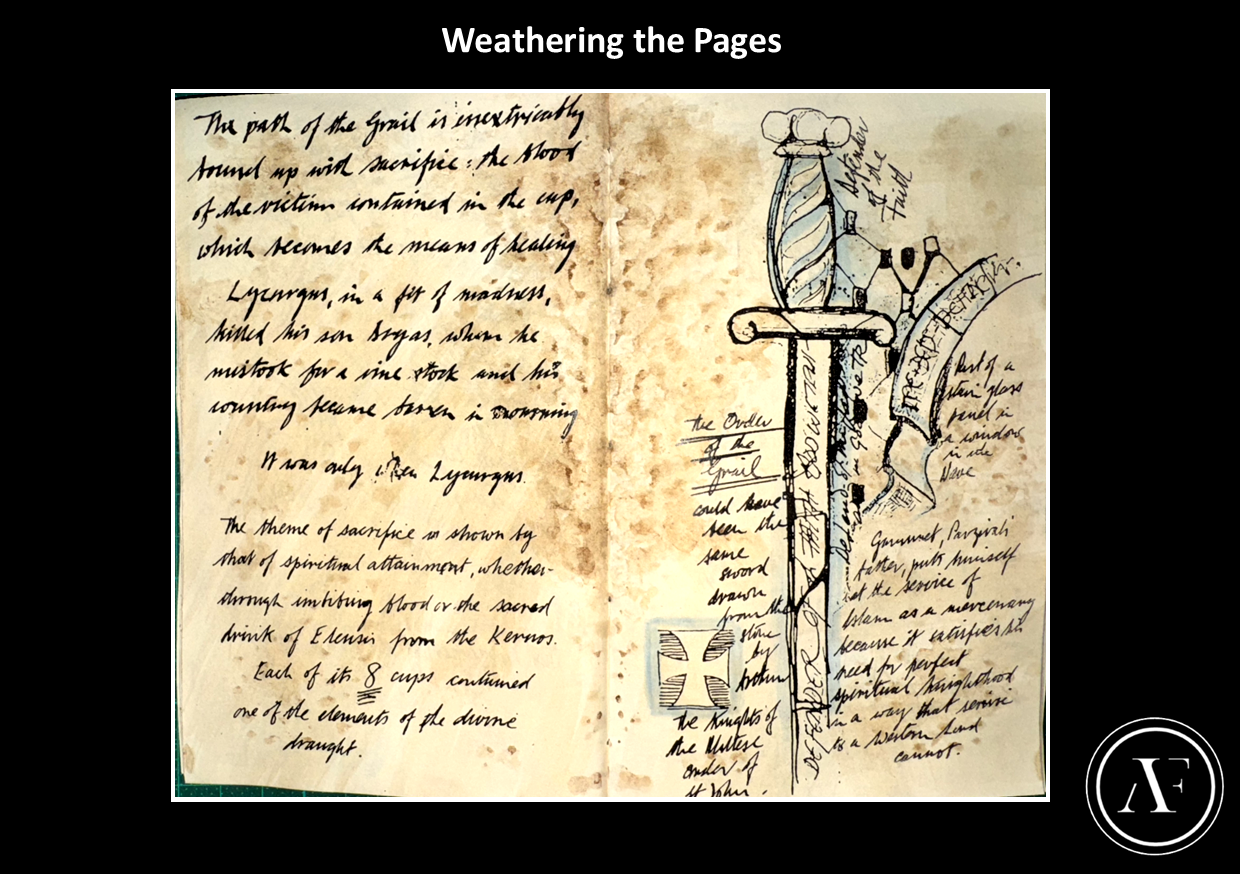 Weathering the Pages
The path of the Grail is inextricably
bound up with sacrifice: the blood
of the victim contained in the cup,
which becomes the means of healing
Lycurgus, in a fit of madness,
killed his son Dryas, whom he
mistook for a vine stock and his
country became barren in mourning
It was only when Lycurgus
The theme of sacrifice is shown by
that of spiritual attainment, whether
through imbibing blood or the sacred
drink of Eleusis from the Kernos.
Each of its 8 cups contained
one of the elements of the divine
draught.
Defender
of the
Faith
the Order
of the
Grail
could have
been the
same
sword
drawn
from the
stone
by
Arthur
the Knights of
the Maltese
order of
St John.
DEFENDER OF THE FAITH
Part of a
stain glass
panel in
a window
in the
Nave
Gamuret, Parzival's
father, puts himself
at the service of
Islam as a mercenary
because it satisfies his
need for perfect
spiritual knighthood
in a way that service
to a Western Lord
cannot.
AF